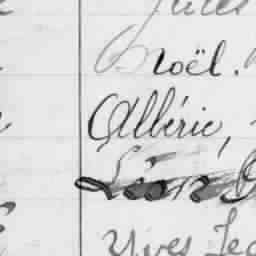 Jules
Noël.
Albéric,
Léon
Yves Le